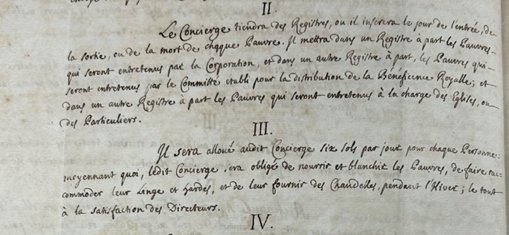 II
Le Concierge tiendra des Registres, ou il inscrira le jour de l'entrée, de
la sortie, ou de la mort de chaque Pauvre. Il mettra dans un Registre à part les Pauvres
qui seront entretenus par la Corporation, et dans un autre Registre à part, les Pauvres qui
seront entretenus par le Committé etabli pour la distribution de la Beneficence Royalle; et
dans un autre Registre à part les Pauvres qui seront entretenus à la charge des Eglises, ou
des Particuliers.
III.
Il sera alloué audit Concierge six sols par jour pour chaque Personne:
moyennant quoi, ledit Concierge sera obligé de nourrir et blanchir les Pauvres, de faire rac-
commoder leur Linge et hardes, et de leur fournir des Chandelles, pendant l'Hiver; le tout
à la satisfaction des Directeurs.
IV.